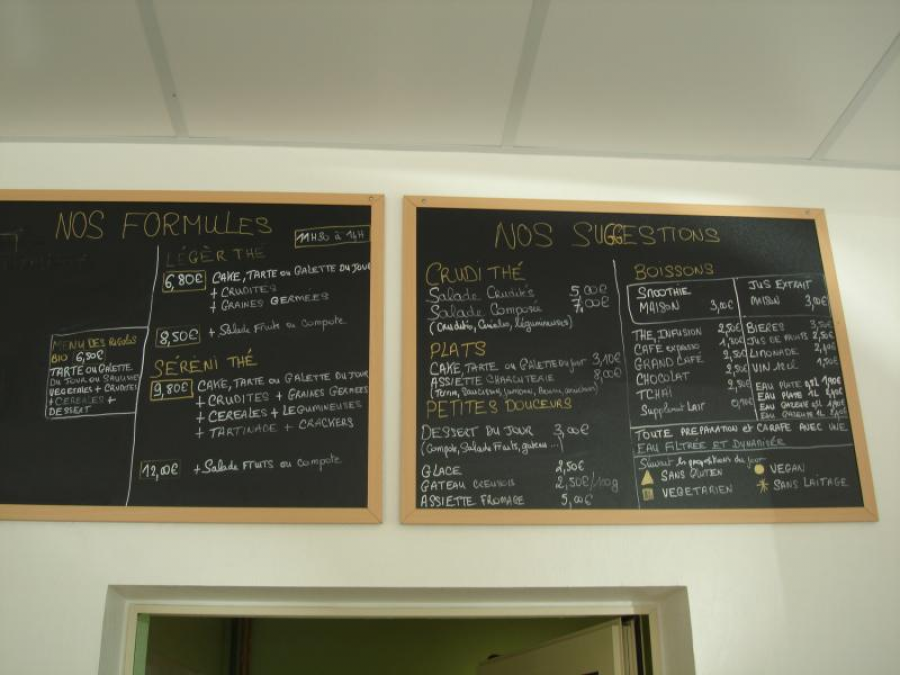 NOS FORMULES
11H30 à 14H
LÉGÈR THÉ
6,80€ CAKE, TARTE OU GALETTE DU JOUR
+ CRUDITES
+ GRAINES GERMEES
8,50€ + Salade Fruits ou Compote
SÉRENI THÉ
9,80€ CAKE, TARTE OU GALETTE DU JOUR
+ CRUDITES + GRAINES GERMEES
+ CEREALES + LEGUMINEUSES
+ TARTINADE + CRACKERS
12,00€ + Salade FRUITS ou compote
MENU DES
BIO 6,50€
TARTE OU GALETTE
DU JOUR OU
VEGETALES + CRUDITES
+ CEREALES +
DESSERT
NOS SUGGESTIONS
CRUDI THÉ
Salade Crudités 5,00€
Salade Composé 7,00€
(Crudités, Céréales, légumineuses)
PLATS
CAKE, TARTE OU GALETTE du jour 3,10€
ASSIETTE CHARCUTERIE 8,00€
PETITES DOUCEURS
DESSERT DU JOUR 3,00€
(Compote, Salade Fruits, gateau ...)
GLACE 2,50€
GATEAU CREUSOIS 2,50€/100g
ASSIETTE FROMAGE 5,00€
BOISSONS
SMOOTHIE
MAISON 3,00€
JUS EXTRAIT
MAISON 3,00€
THE, INFUSION 2,50€
CAFE expresso 1,50€
GRAND CAFÉ 2,50€
CHOCOLAT 2,50€
TCHAI 2,50€
Supplement Lait
BIERES 3,50€
JUS DE FRUITS 2,50€
LIMONADE
VIN
EAU PLATE
EAU PLATE 1L
EAU GAZEUSE
EAU GAZEUSE 1L
TOUTE PREPARATION ET CARAFE AVEC UNE
EAU FILTRÉE ET DYNAMISÉE
Suivant les propositions du jour
SANS GLUTEN
VEGAN
VEGETARIEN
SANS LAITAGE